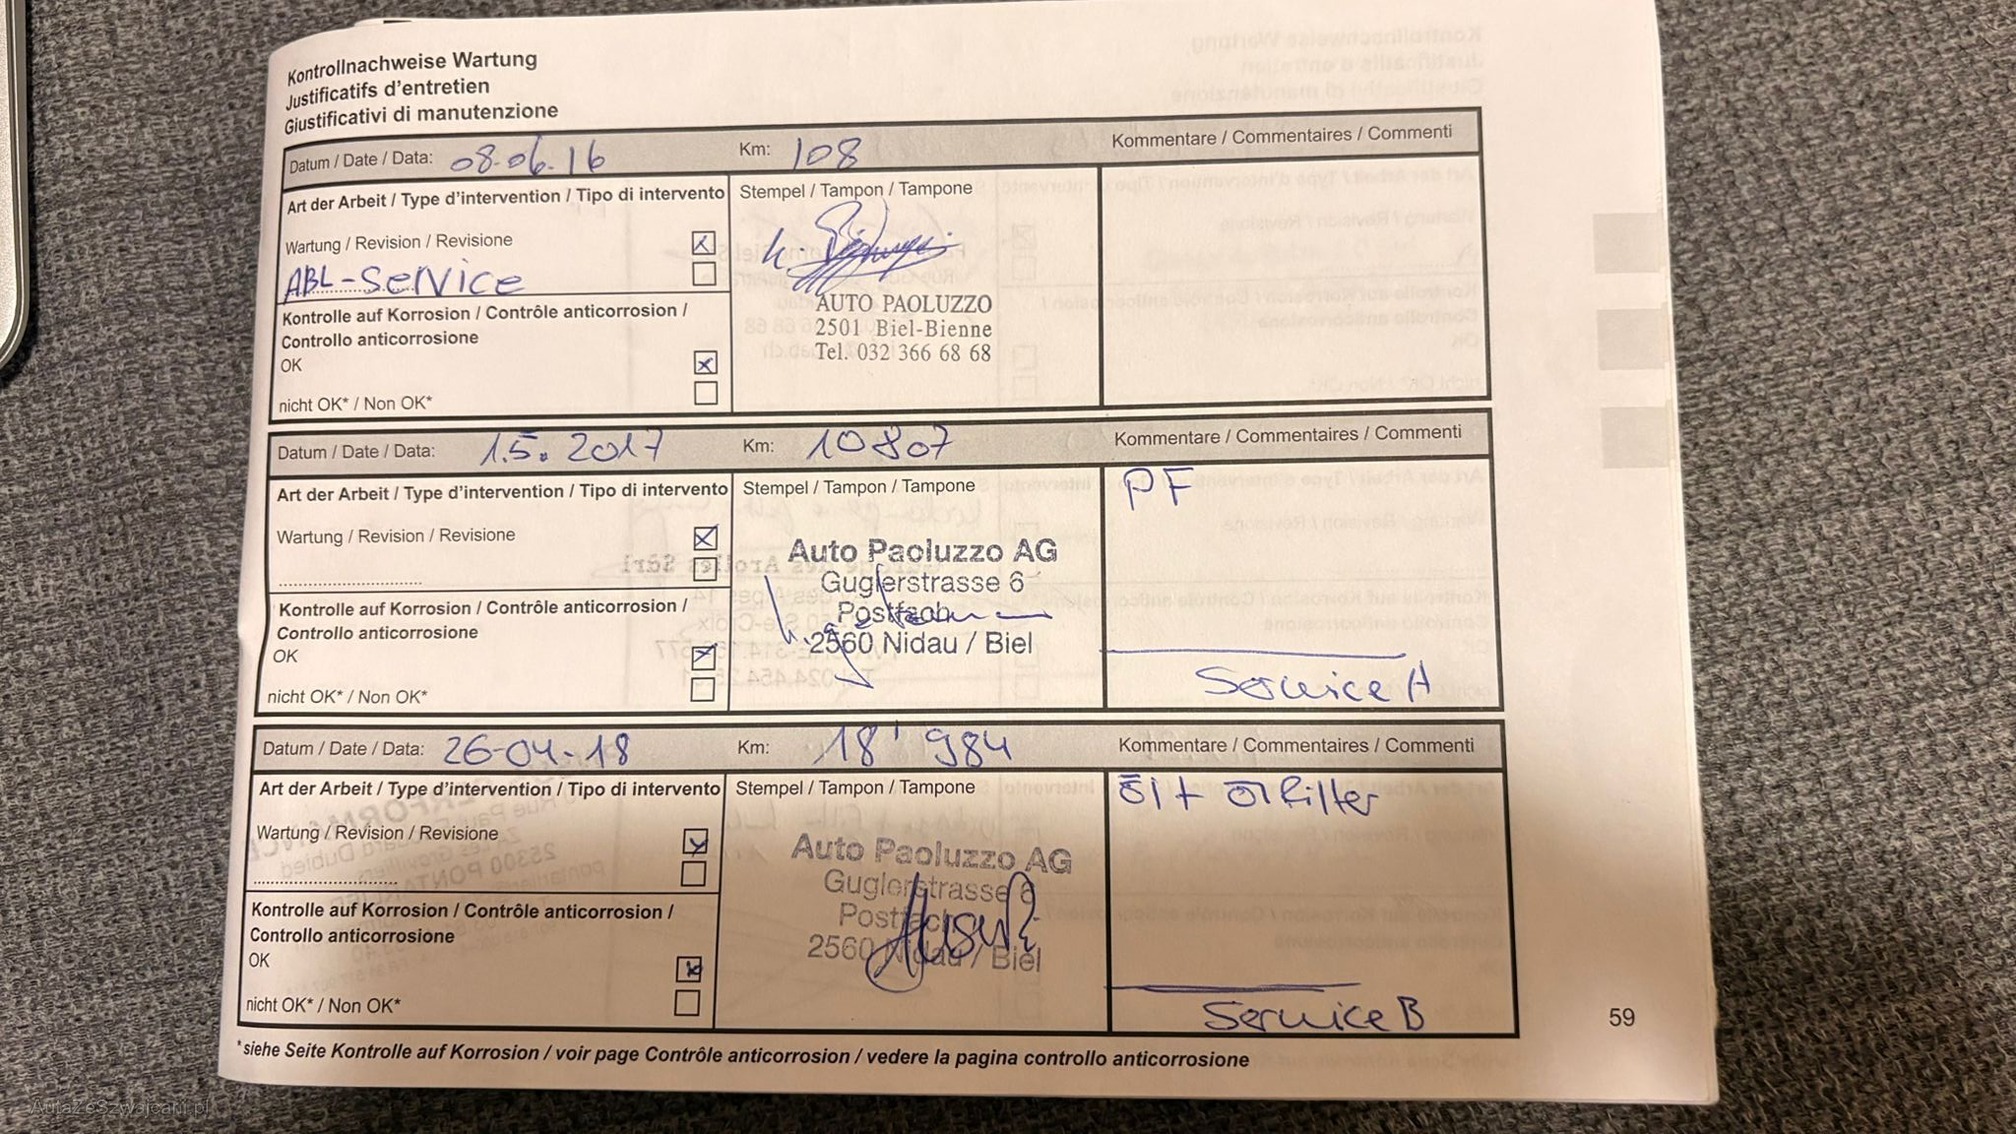 Kontrollnachweise Wartung
Justificatifs d'entretien
Giustificativi di manutenzione
Datum / Date / Data: 08.06.16 Km: 108 Kommentare / Commentaires / Commenti
Art der Arbeit / Type d'intervention / Tipo di intervento Stempel / Tampon / Tampone
Wartung / Revision / Revisione
ABL-Service
Kontrolle auf Korrosion / Contrôle anticorrosion /
Controllo anticorrosione
OK
nicht OK* / Non OK*
AUTO PAOLUZZO
2501 Biel-Bienne
Tel. 032 366 68 68
Datum / Date / Data: 1.5. 2017 Km: 10807 Kommentare / Commentaires / Commenti
Art der Arbeit / Type d'intervention / Tipo di intervento Stempel / Tampon / Tampone
Wartung / Revision / Revisione
Kontrolle auf Korrosion / Contrôle anticorrosion /
Controllo anticorrosione
OK
nicht OK* / Non OK*
Auto Paoluzzo AG
Guglerstrasse 6
Postfach
2560 Nidau / Biel
PF
Service A
Datum / Date / Data: 26-04-18 Km: 18'984 Kommentare / Commentaires / Commenti
Art der Arbeit / Type d'intervention / Tipo di intervento Stempel / Tampon / Tampone
Wartung / Revision / Revisione
Kontrolle auf Korrosion / Contrôle anticorrosion /
Controllo anticorrosione
OK
nicht OK* / Non OK*
Auto Paoluzzo AG
Guglerstrasse 6
Postfach
2560 Nidau / Biel
Öl + Ölfilter
Service B
*siehe Seite Kontrolle auf Korrosion / voir page Contrôle anticorrosion / vedere la pagina controllo anticorrosione
59
AutaZeSzwajcarii.pl